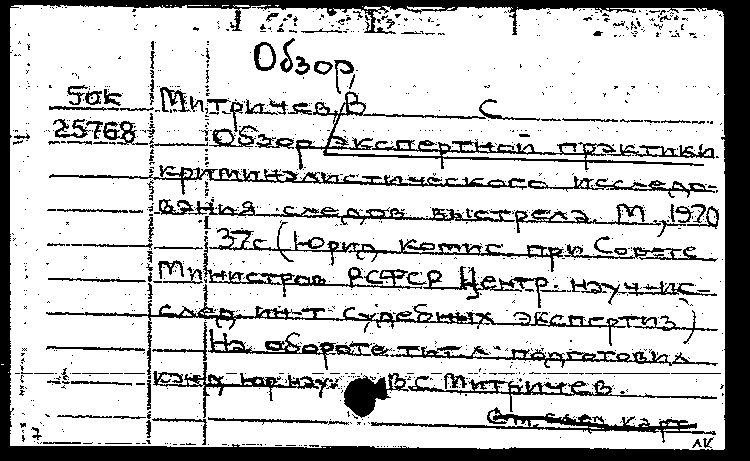 Обзор
Митричев, В С
25768 Обзор экспертной практики
криминалистического исследо-
вания следов выстрела. М., 1970
37с (Юрид комис. при Совете
Министров РСФСР Центр. науч-ис-
след ин-т судебных экспертиз)
На обороте тит л: подготовил
канд юр наук В.С Митричев.
См. след карт
ЛК